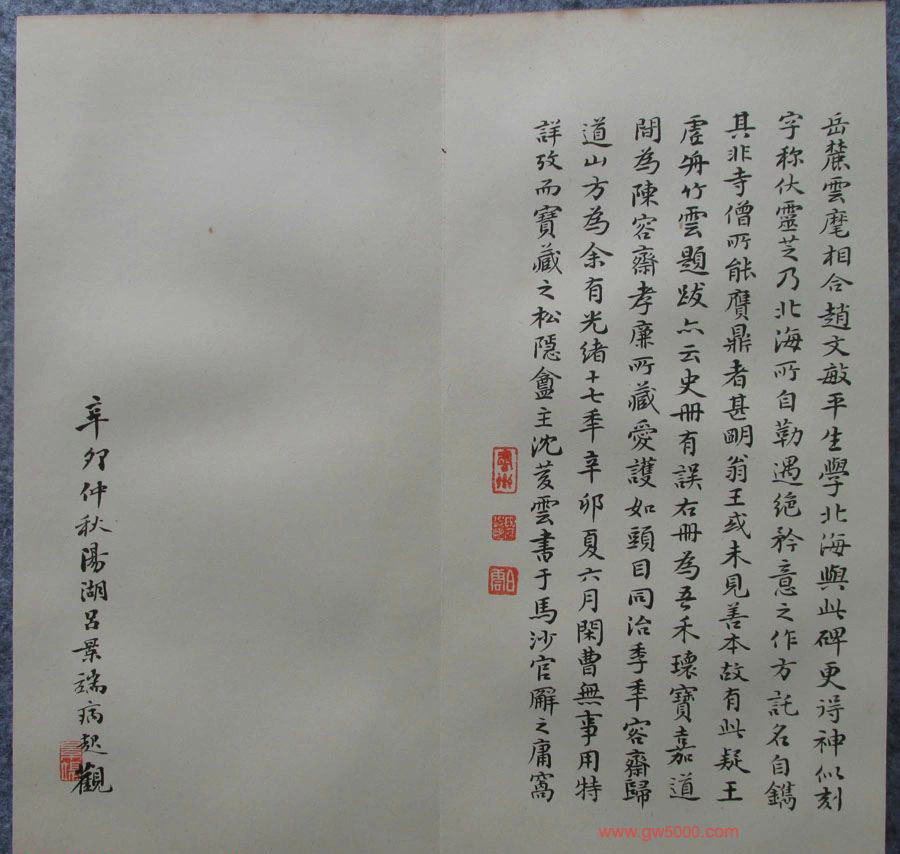 岳麓雲麾相合趙文敏平生學北海與此碑更得神似刻
字称伏靈芝乃北海所自勒遇絶矜意之作方託名自鐫
其非寺僧所能贋鼎者甚明翁王或未見善本故有此疑王
虚舟竹雲題跋亦云史冊有誤右冊為吾禾瓌寶嘉道
間為陳容齋孝廉所藏愛護如頭目同治季年容齋歸
道山方為余有光緒十七年辛卯夏六月閑曹無事用特
詳攷而寶藏之松隱盦主沈雲書于馬沙官廨之庸窩
辛卯仲秋陽湖呂景端病起觀
www.gw5000.com